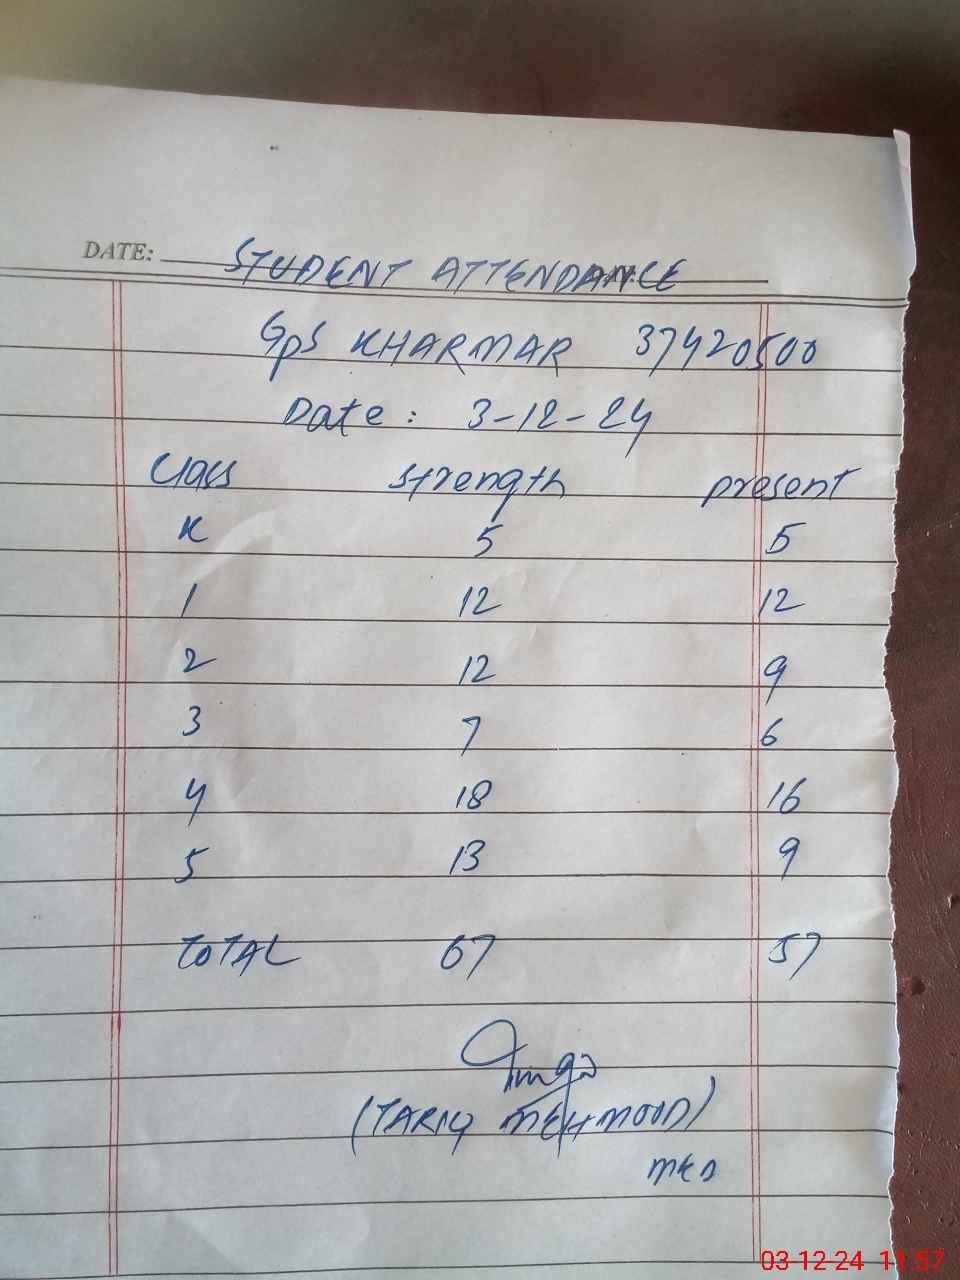 DATE: STUDENT ATTENDANCE
GpS KHARMAR 37420500
Date : 3-12-24
Class strength present
K 5 5
1 12 12
2 12 9
3 7 6
4 18 16
5 13 9
TOTAL 67 57
(TARIQ MEHMOOD)
03-12-24 11:57